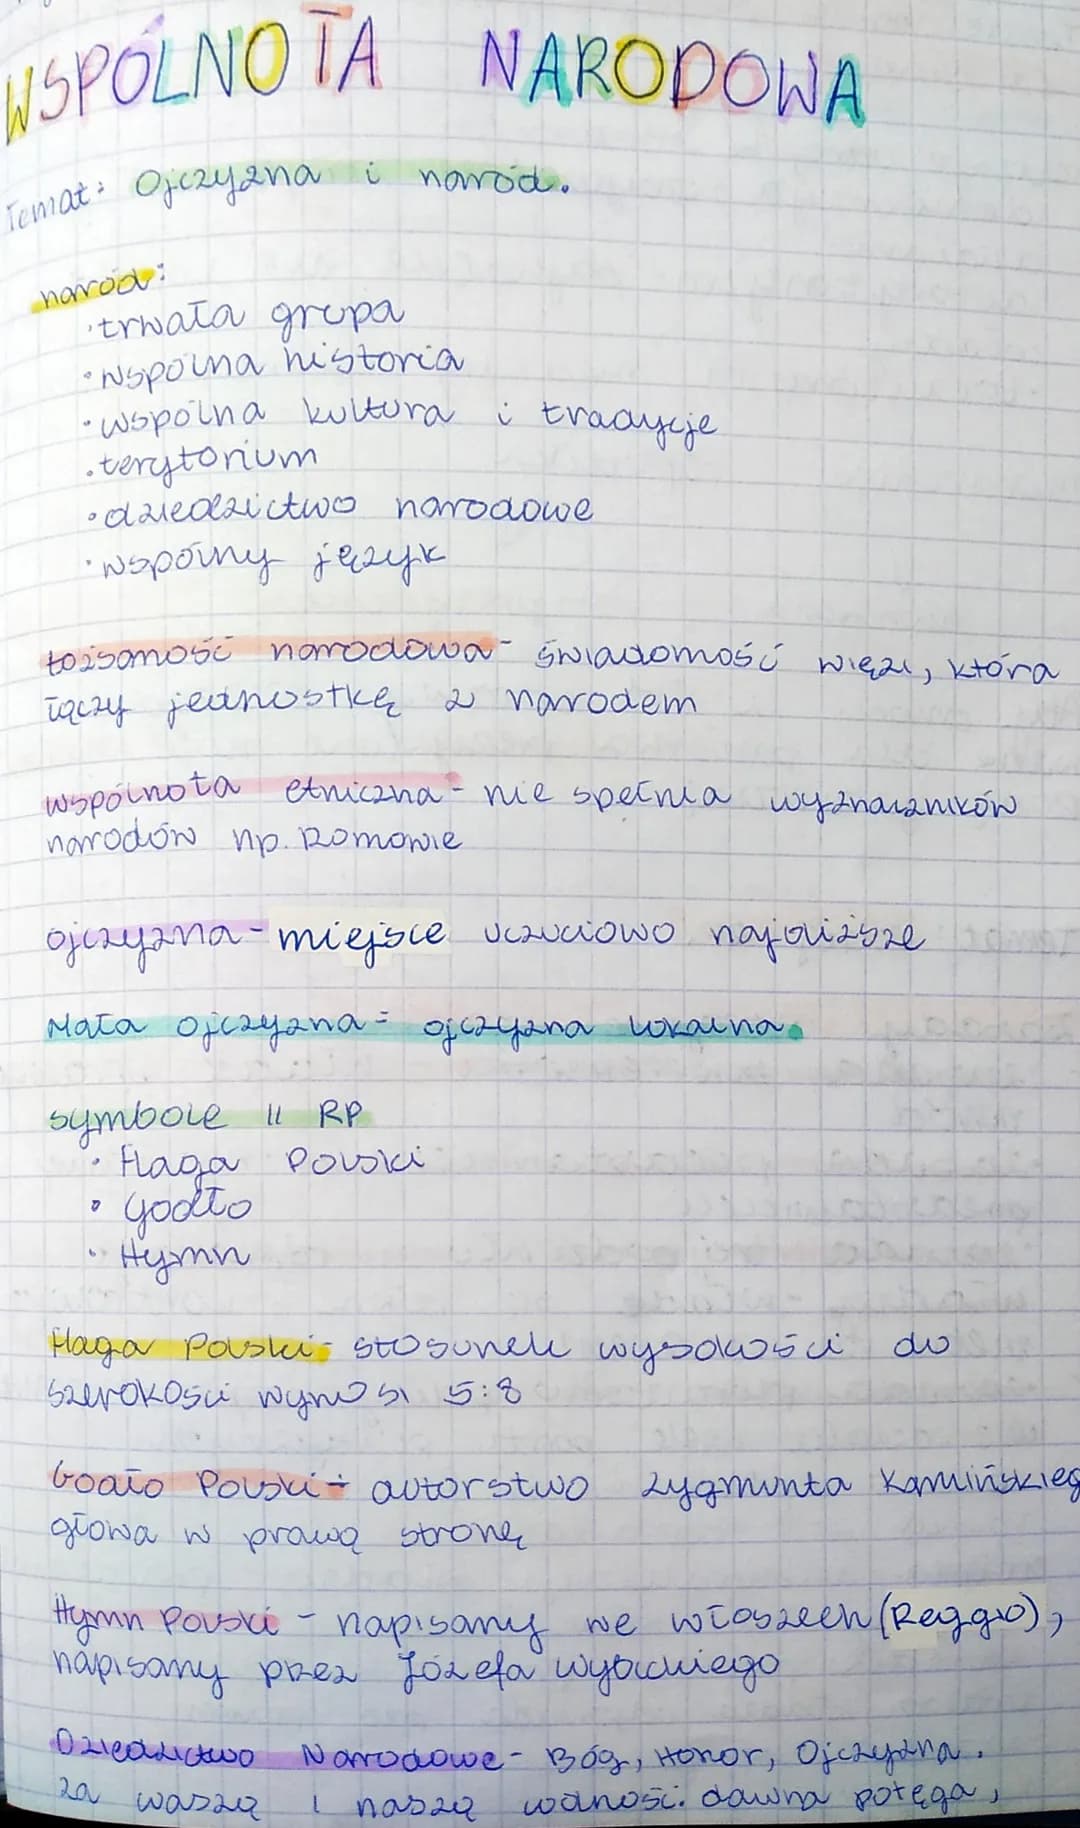 WSPÓLNOTA NARODOWA
Temat: Ojczyzna i naród.
naród:
• trwała grupa
• wspólna historia
• wspólna kultura i tradycje
• terytorium
• dziedzictwo narodowe
• wspólny język
tożsamość narodowa - świadomość więzi, która
łączy jednostkę z narodem
wspólnota etniczna - nie spełnia wyznaczników
narodów np. Romowie
ojczyzna - miejsce uczuciowo najbliższe
Mała ojczyzna = ojczyzna lokalna.
symbole II RP
• Flaga Polski
• Godło
• Hymn
Flaga Polski - stosunek wysokości do
szerokości wynosi 5:8
Godło Polski - autorstwo Zygmunta Kamińskieg
głowa w prawą stronę
Hymn Polski - napisany we włoszech (Reggio),
napisany przez Józefa wybickiego
Dziedzictwo Narodowe - Bóg, Honor, Ojczyzna.
za waszą i naszą wolność. dawna potęga,